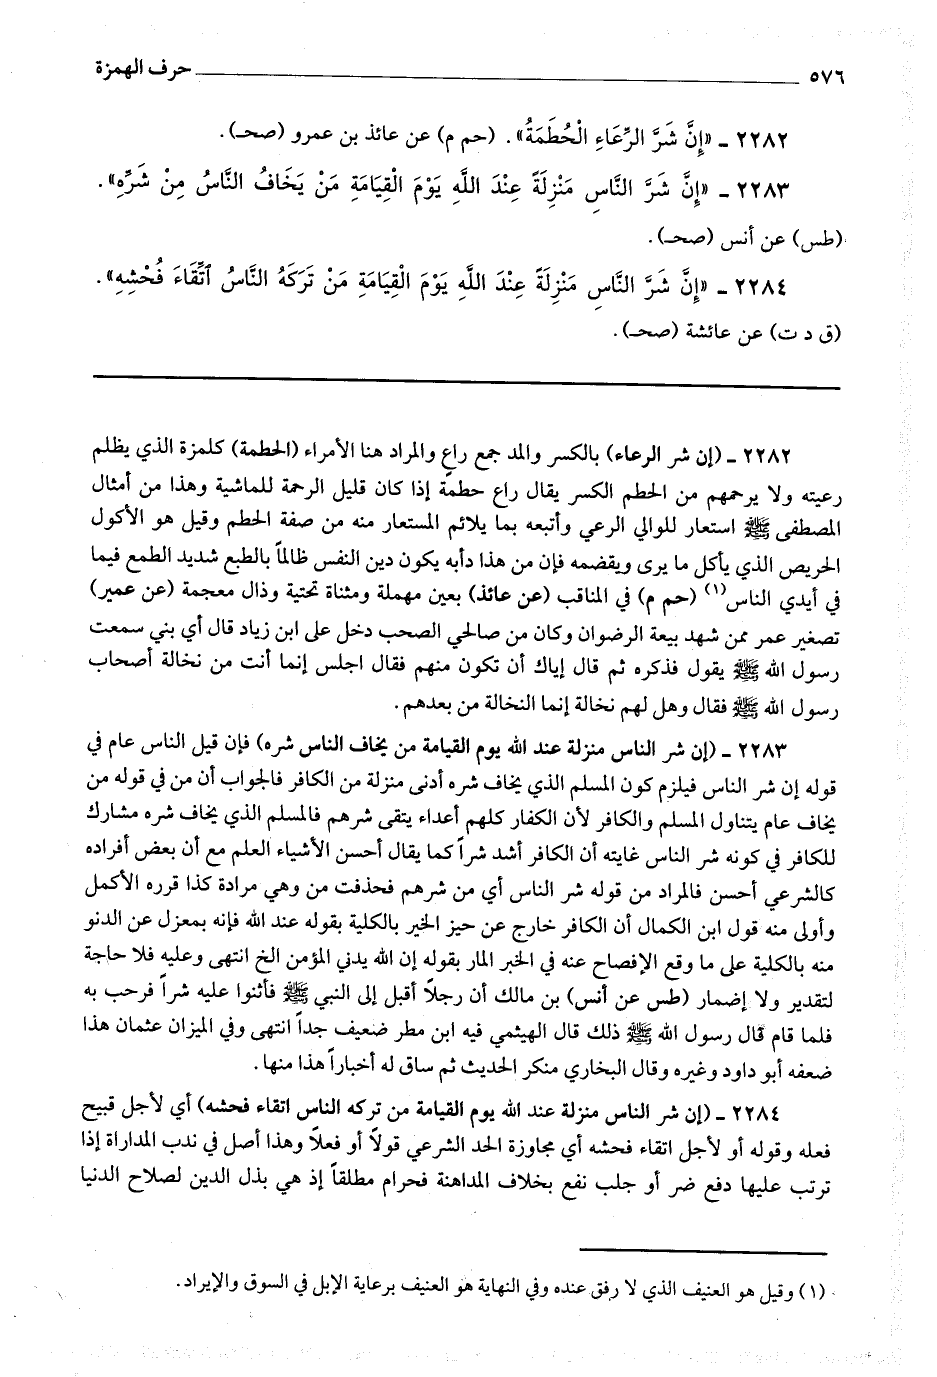 ٥٧٦ حرف الهمزة
٢٢٨٢ ـ «إِنَّ شَرَّ الرِّعَاءِ الْحُطَمَةُ». (حم م) عن عائذ بن عمرو (صحـ).
٢٢٨٣ ـ «إِنَّ شَرَّ النَّاسِ مَنْزِلَةً عِنْدَ اللَّهِ يَوْمَ الْقِيَامَةِ مَنْ يَخَافُ النَّاسُ مِنْ شَرِّهِ».
(طس) عن أنس (صحـ).
٢٢٨٤ ـ «إِنَّ شَرَّ النَّاسِ مَنْزِلَةً عِنْدَ اللَّهِ يَوْمَ الْقِيَامَةِ مَنْ تَرَكَهُ النَّاسُ اتِّقَاءَ فُحْشِهِ».
(ق د ت) عن عائشة (صحـ).
٢٢٨٢ ـ (إن شر الرعاء) بالكسر والمد جمع راعٍ والمراد هنا الأمراء (الحطمة) كلمزة الذي يظلم
رعيته ولا يرحمهم من الحطم الكسر يقال راع حطمة إذا كان قليل الرحمة للماشية وهذا من أمثال
المصطفى ﷺ استعار للوالي الرعي وأتبعه بما يلائم المستعار منه من صفة الحطم وقيل هو الأكول
الحريص الذي يأكل ما يرى ويقضمه فإن من هذا دأبه يكون دين النفس ظالماً بالطبع شديد الطمع فيما
في أيدي الناس(١) (حم م) في المناقب (عن عائذ) بعين مهملة ومثناة تحتية وذال معجمة (عن عمير)
تصغير عمر ممن شهد بيعة الرضوان وكان من صالحي الصحب دخل على ابن زياد قال أي بني سمعت
رسول الله ﷺ يقول فذكره ثم قال إياك أن تكون منهم فقال اجلس إنما أنت من نخالة أصحاب
رسول الله ﷺ فقال وهل لهم نخالة إنما النخالة من بعدهم.
٢٢٨٣ ـ (إن شر الناس منزلة عند الله يوم القيامة من يخاف الناس شره) فإن قيل الناس عام في
قوله إن شر الناس فيلزم كون المسلم الذي يخاف شره أدنى منزلة من الكافر فالجواب أن من في قوله من
يخاف عام يتناول المسلم والكافر لأن الكفار كلهم أعداء يتقى شرهم فالمسلم الذي يخاف شره مشارك
للكافر في كونه شر الناس غايته أن الكافر أشد شراً كما يقال أحسن الأشياء العلم مع أن بعض أفراده
كالشرعي أحسن فالمراد من قوله شر الناس أي من شرهم فحذفت من وهي مرادة كذا قرره الأكمل
وأولى منه قول ابن الكمال أن الكافر خارج عن حيز الخير بالكلية بقوله عند الله فإنه بمعزل عن الدنو
منه بالكلية على ما وقع الإفصاح عنه في الخبر المار بقوله إن الله يدني المؤمن الخ انتهى وعليه فلا حاجة
لتقدير ولا إضمار (طس عن أنس) بن مالك أن رجلاً أقبل إلى النبي ﷺ فأثنوا عليه شراً فرحب به
فلما قام قال رسول الله ﷺ ذلك قال الهيثمي فيه ابن مطر ضعيف جداً انتهى وفي الميزان عثمان هذا
ضعفه أبو داود وغيره وقال البخاري منكر الحديث ثم ساق له أخباراً هذا منها.
٢٢٨٤ ـ (إن شر الناس منزلة عند الله يوم القيامة من تركه الناس اتقاء فحشه) أي لأجل قبيح
فعله وقوله أو لأجل اتقاء فحشه أي مجاوزة الحد الشرعي قولاً أو فعلاً وهذا أصل في ندب المداراة إذا
ترتب عليها دفع ضر أو جلب نفع بخلاف المداهنة فحرام مطلقاً إذ هي بذل الدين لصلاح الدنيا
(١) وقيل هو العنيف الذي لا رفق عنده وفي النهاية هو العنيف برعاية الإبل في السوق والإيراد.